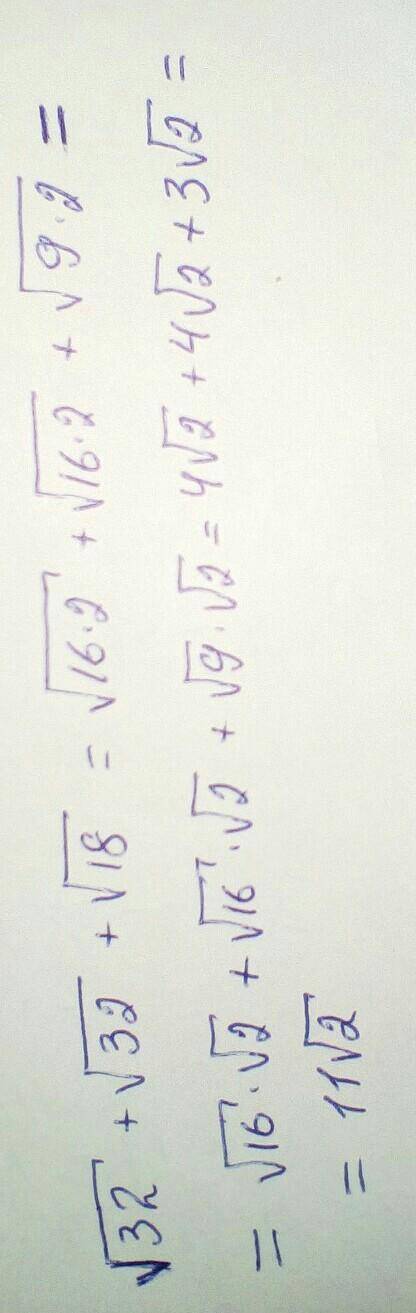 √32 + √32 + √18 = √16·2 + √16·2 + √9·2 =
= √16·√2 + √16·√2 + √9·√2 = 4√2 + 4√2 + 3√2 =
= 11√2